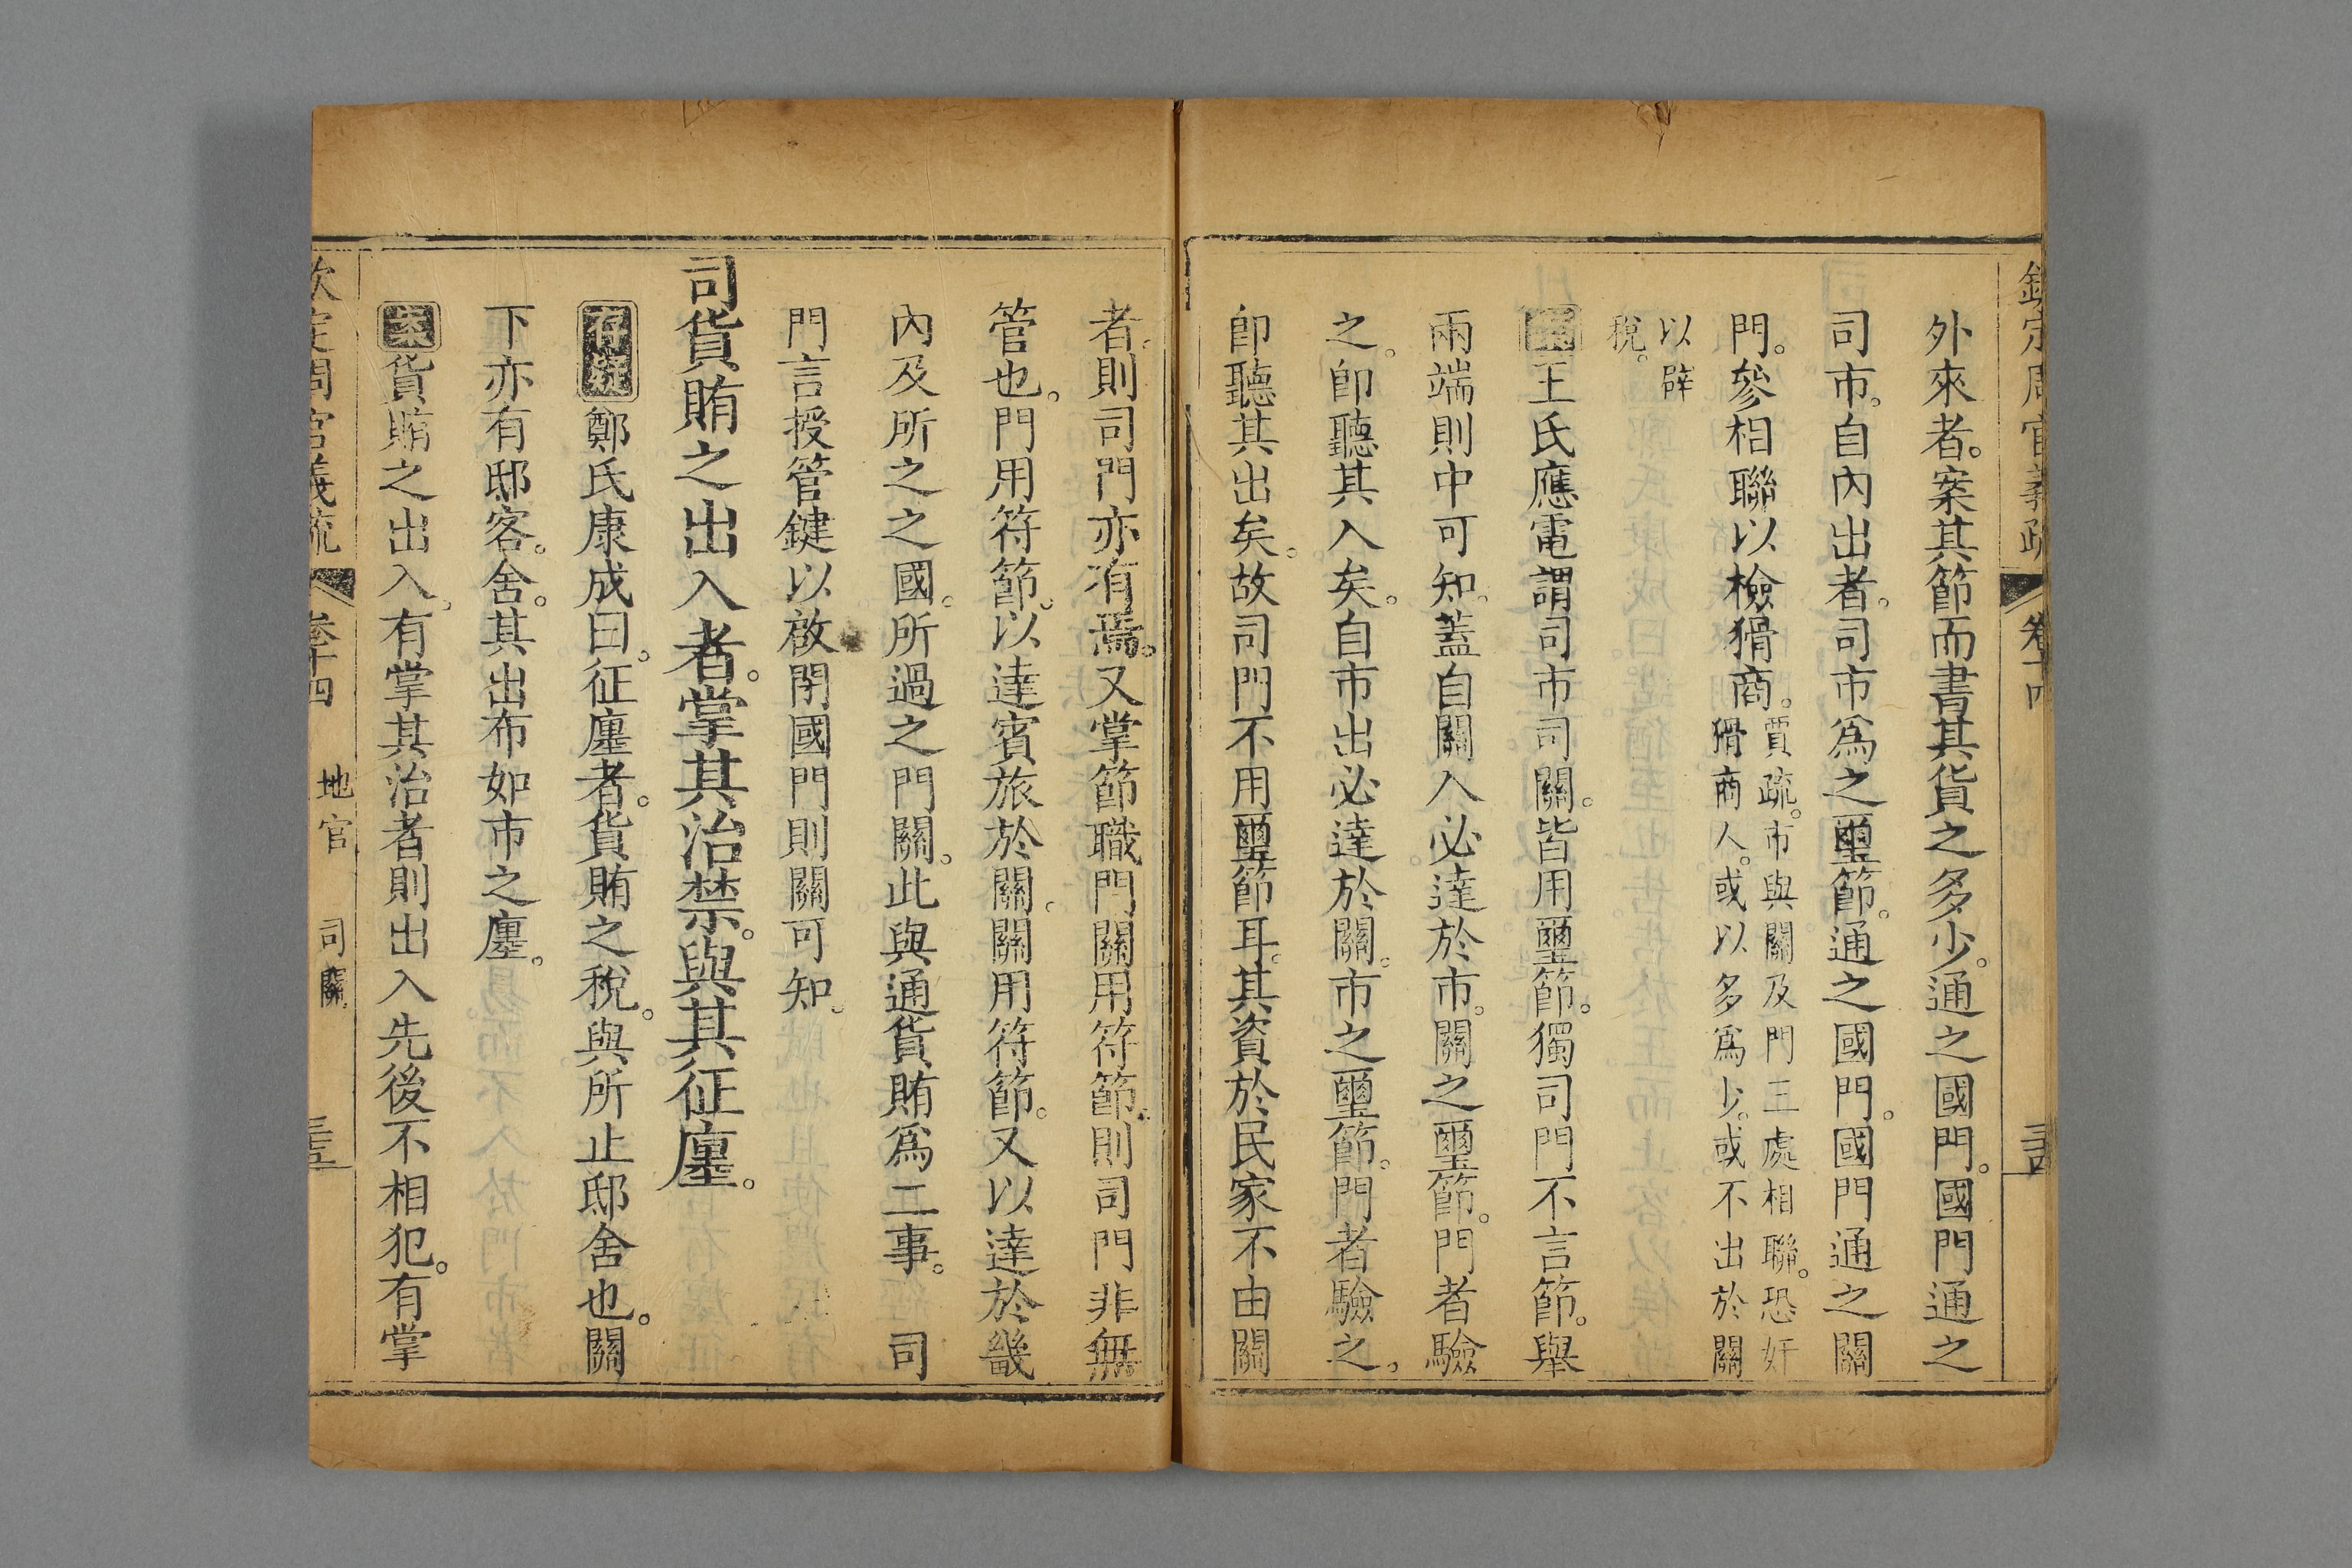 欽定周官義疏 卷十四
外來者。案其節而書其貨之多少。通之國門。國門通之
司市。自內出者。司市爲之璽節。通之國門。國門通之關
門。參相聯以檢猾商。賈疏。市與關及門三處相聯。恐奸
猾商人。或以多爲少。或不出於關
以辟
稅。
王氏應電謂司市司關。皆用璽節。獨司門不言節。舉
兩端則中可知。蓋自關入必達於市。關之璽節。門者驗
之。卽聽其入矣。自市出必達於關。市之璽節。門者驗之。
卽聽其出矣。故司門不用璽節耳。其資於民家不由關
者。則司門亦有焉。又掌節職門關用符節。則司門非無
管也。門用符節。以達賓旅於關。關用符節。又以達於畿
內及所之之國。所過之門關。此與通貨賄爲二事。 司
門言授管鍵以啟閉國門則關可知。
司貨賄之出入者。掌其治禁。與其征廛。
存疑 鄭氏康成曰。征廛者。貨賄之稅。與所止邸舍也。關
下亦有邸客。舍。其出布如市之廛。
案 貨賄之出入。有掌其治者則出入先後不相犯。有掌
欽定周官義疏 卷十四 地官 司關 三五